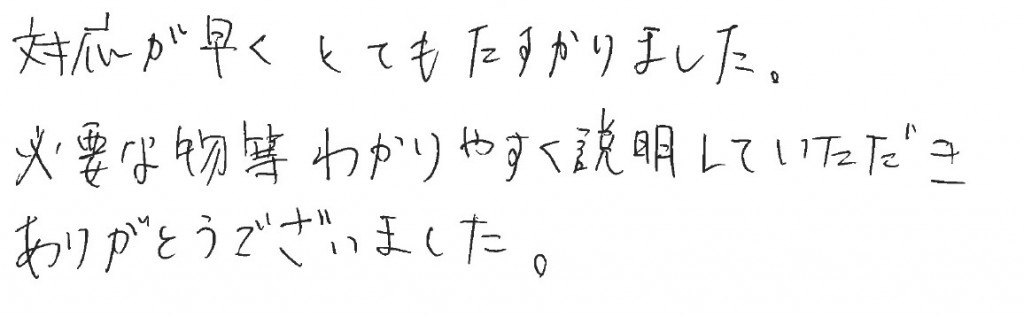 対応が早く とてもたすかりました。
必要な物等わかりやすく説明していただき
ありがとうございました。